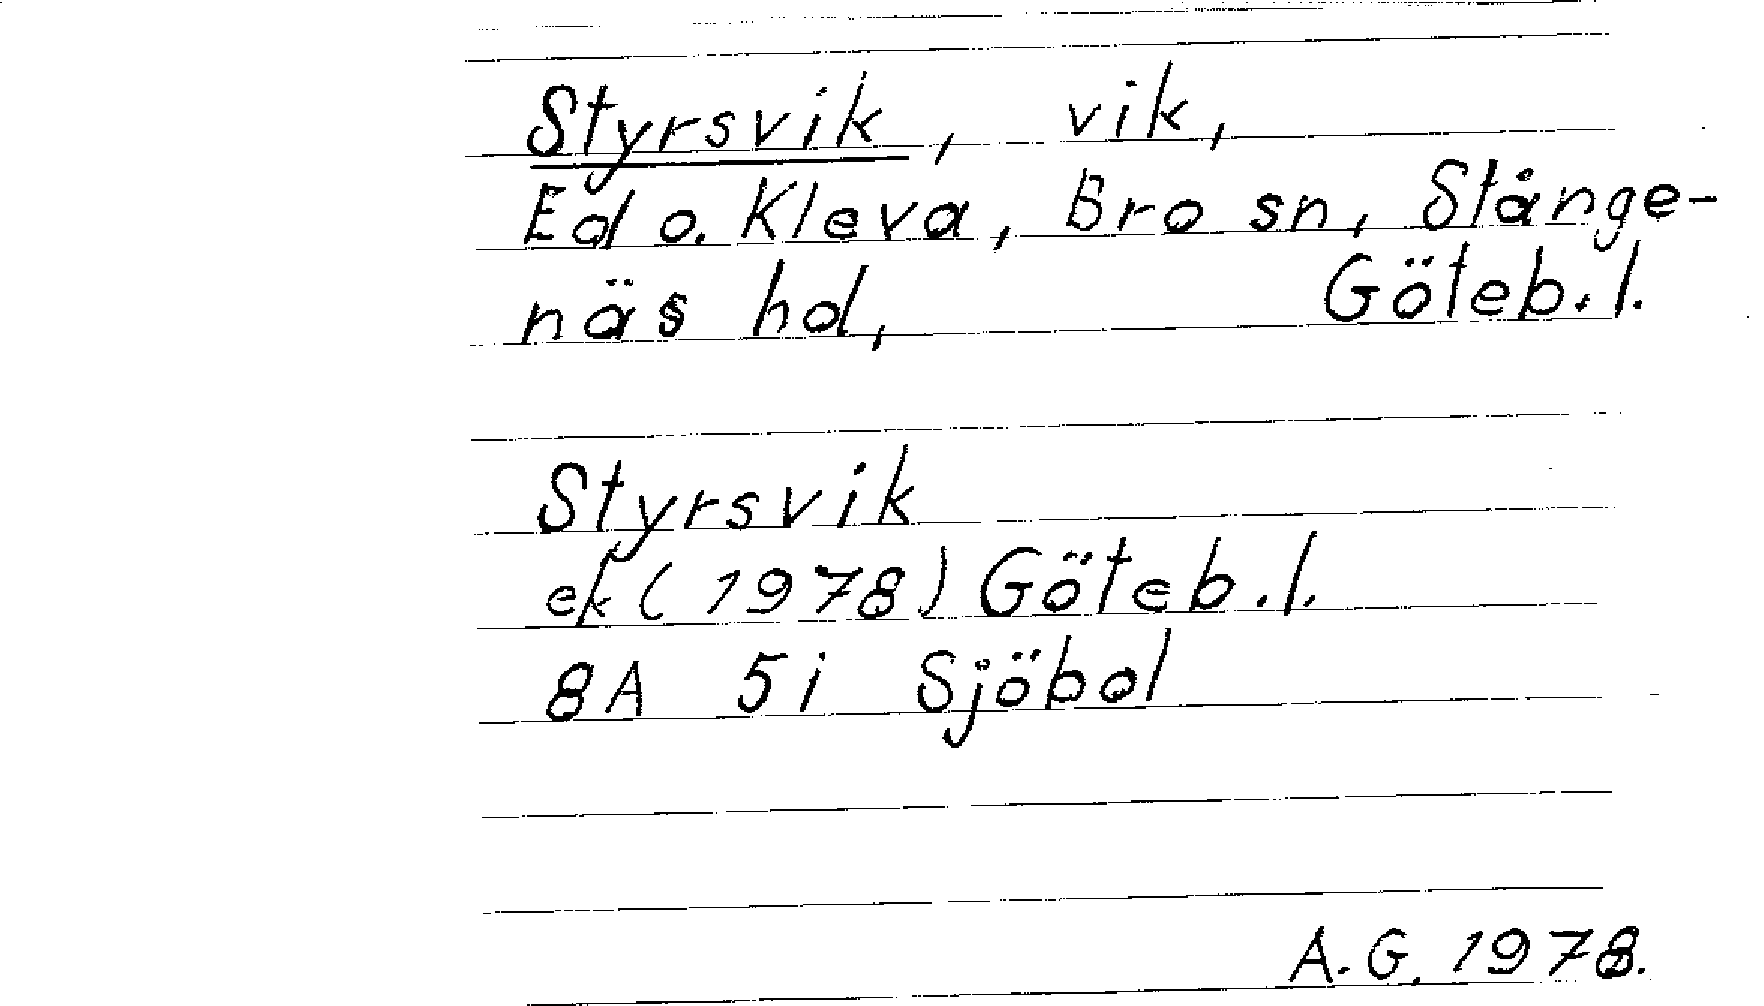 Styrsvik, vik,
Ed o. Kleva, Bro sn, Stånge-
näs hd, Göteb. l.
Styrsvik
ek (1978) Göteb. l.
8A 5i Sjöbol
A. G. 1978.